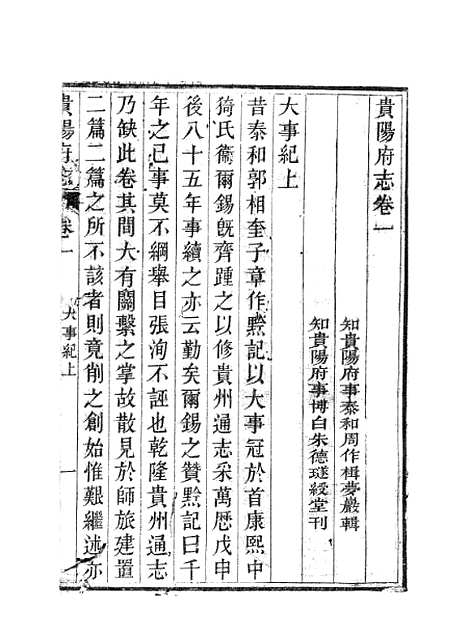 貴陽府志卷一
知貴陽府事泰和周作楫夢巖輯
知貴陽府事博白朱德璲綬堂刊
大事紀上
昔泰和郭相奎子章作黔記以大事冠於首康熙中
猗氏衞爾錫旣齊踵之以修貴州通志采萬厯戊申
後八十五年事續之亦云勤矣爾錫之贊黔記曰千
年之已事莫不綱舉目張洵不誣也乾隆貴州通志
乃缺此卷其間大有關繫之掌故散見於師旅建置
二篇二篇之所不該者則竟削之創始惟艱繼述亦
貴陽府志 卷一 大事紀上 一